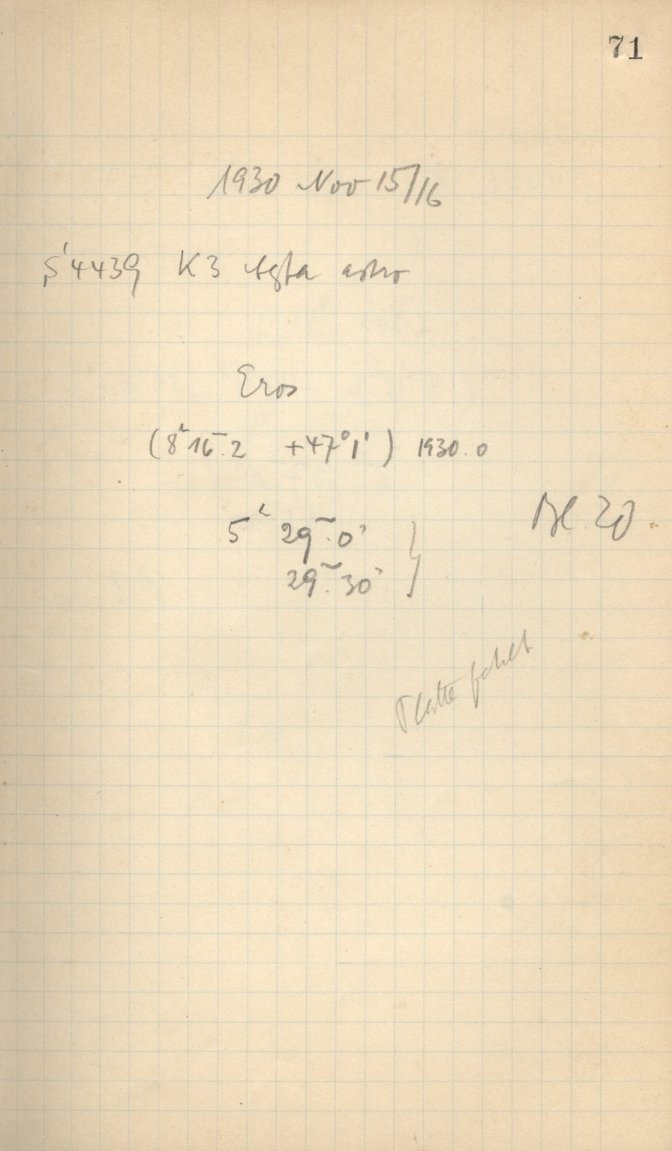 71
1930 Nov 15/16
S 4439 K3 Agfa astro
Eros
(8ʰ 16ᵐ.2 +47° 1') 1930.0
5ʰ 29ᵐ.0ˢ
Bl 20
29ᵐ.30ˢ
Platte fehlt